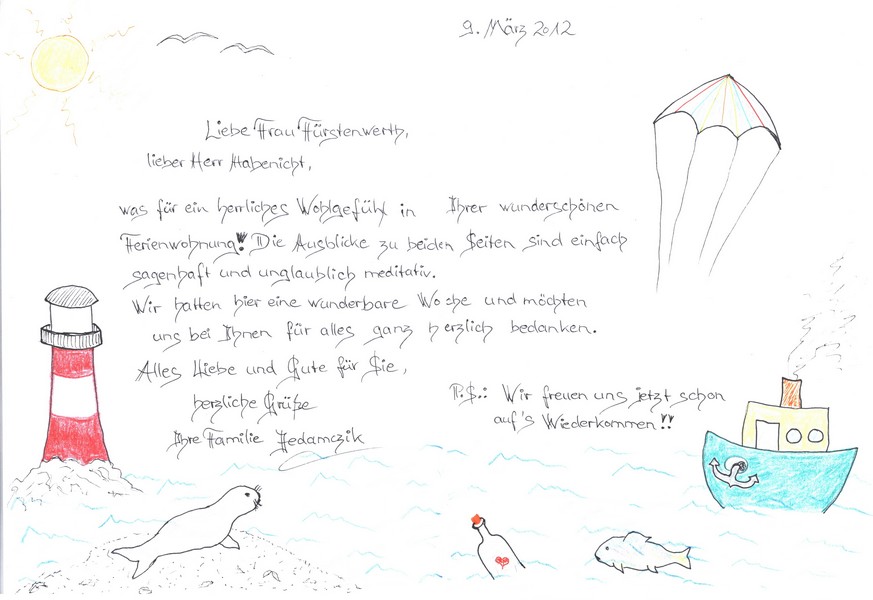 9. März 2012
Liebe Frau Fürstenwerth,
lieber Herr Habenicht,
was für ein herrliches Wohlgefühl in Ihrer wunderschönen
Ferienwohnung! Die Ausblicke zu beiden Seiten sind einfach
sagenhaft und unglaublich meditativ.
Wir hatten hier eine wunderbare Woche und möchten
uns bei Ihnen für alles ganz herzlich bedanken.
Alles Liebe und Gute für Sie,
herzliche Grüße
Ihre Familie Jedamczik
P.S.: Wir freuen uns jetzt schon
auf's Wiederkommen!!